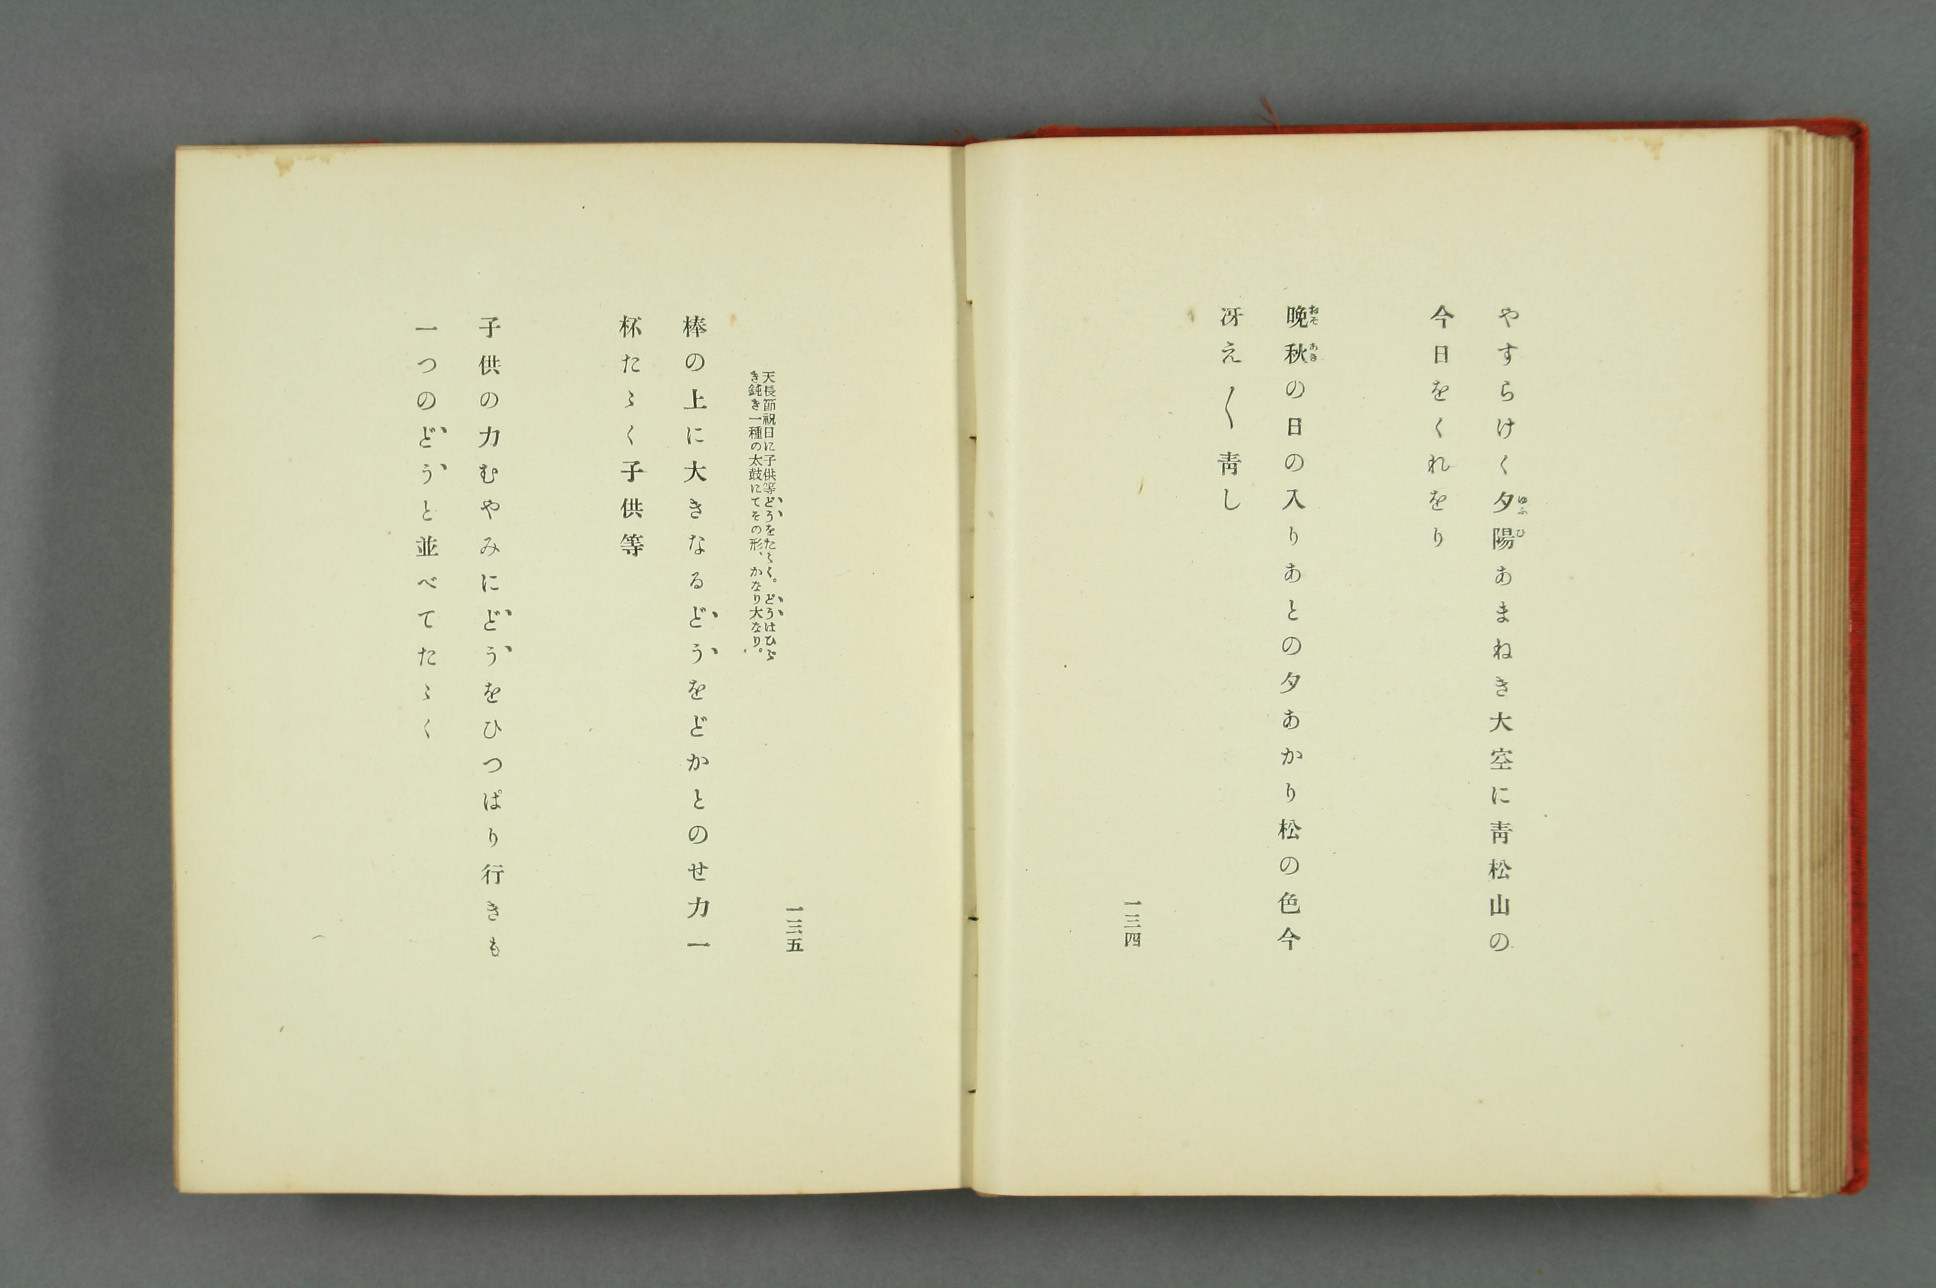 やすらけく夕陽あまねき大空に靑松山の
今日をくれをり
晩秋の日の入りあとの夕あかり松の色今
冴え〱靑し
一三四
天長節祝日に子供等どうをたゝく。どうはひゞ
き鈍き一種の太鼓にてその形、かなり大なり。
棒の上に大きなるどうをどかとのせ力一
杯たゝく子供等
子供の力むやみにどうをひつぱり行きも
一つのどうと並べてたゝく
一三五